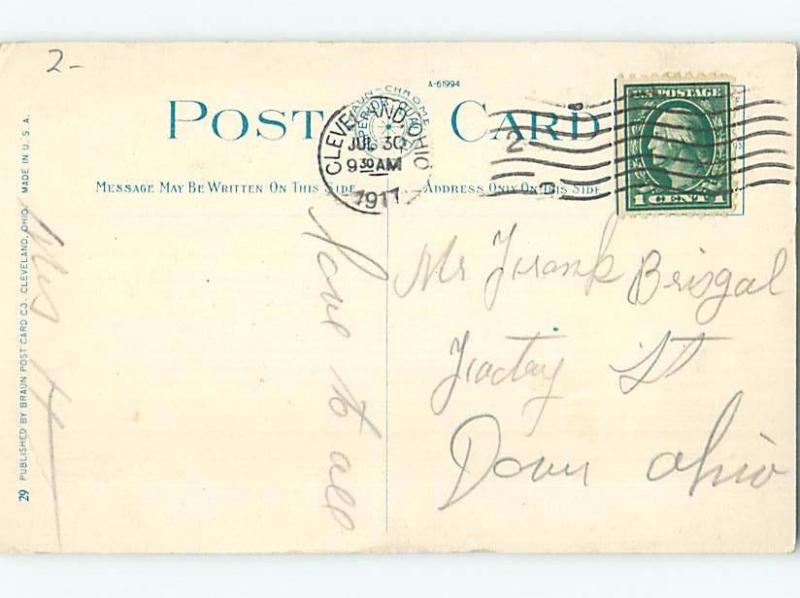 2-
A-61994
POST CARD
CLEVELAND, OHIO
JUL 30
9 30 AM
1917
2
U.S. POSTAGE
1 CENT 1
MESSAGE MAY BE WRITTEN ON THIS SIDE
ADDRESS ONLY ON THIS SIDE
Love to all
Mr Frank Brisgal
St
Dover Ohio
29 PUBLISHED BY BRAUN POST CARD CO. CLEVELAND, OHIO. MADE IN U.S.A.